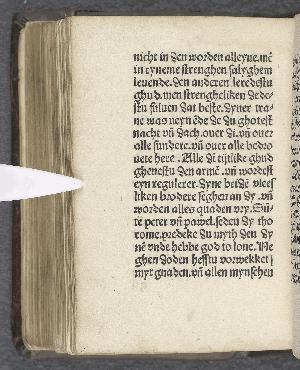 nicht in den worden alleyne. mē
in eyneme strenghen salyghem
leuende. Den anderen leredestu
ghud. men strengheliken dede-
stu suluen dat beste. Dyner tra-
ne was neyn ēde de du ghotest
nacht vñ dach. ouer di. vñ ouer
alle sundere. vñ ouer alle bedro
uete here. Alle di tijtlike ghud
gheuestu den armē. vñ wordest
eyn regulerer. Dyne beidē vlees
liken brodere seghen an dy. vñ
worden alles quaden vry. Sū-
te peter vñ pawel. seden dy tho
rome. predeke du myth den dy
ne vnde hebbe god to lone. Ne
ghen doden hefstu vorwekket
myt gnaden. vñ allen mynschen